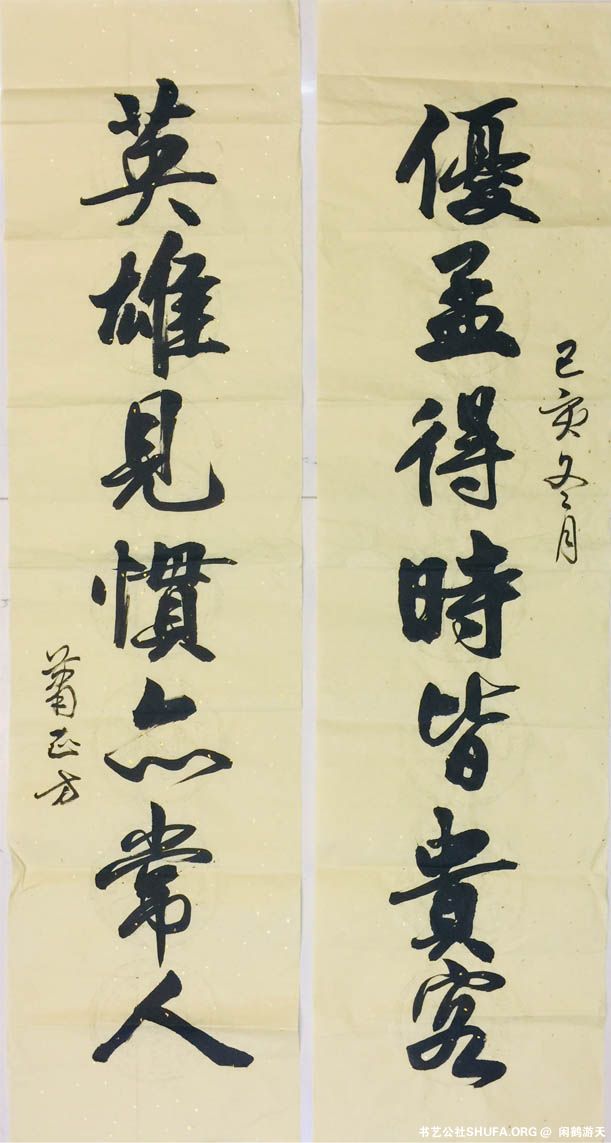 優孟得時皆貴客
己亥冬月
英雄見慣亦常人
蕭正方
书艺公社SHUFA.ORG @ 闲鹤游天